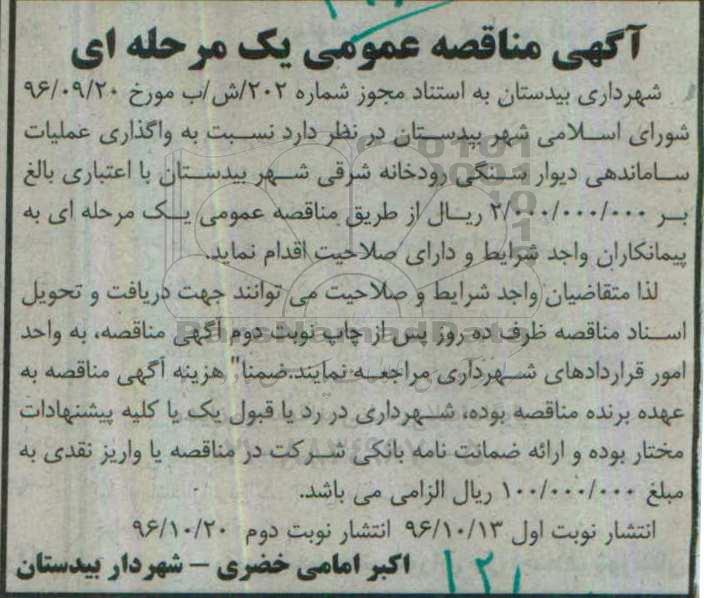 آگهی مناقصه عمومی یک مرحله ای
شهرداری بیدستان به استناد مجوز شماره ۲۰۲/ش/ب مورخ ۹۶/۰۹/۲۰
شورای اسلامی شهر بیدستان در نظر دارد نسبت به واگذاری عملیات
ساماندهی دیوار سنگی رودخانه شرقی شهر بیدستان با اعتباری بالغ
بر ۲/۰۰۰/۰۰۰/۰۰۰ ریال از طریق مناقصه عمومی یک مرحله ای به
پیمانکاران واجد شرایط و دارای صلاحیت اقدام نماید.
لذا متقاضیان واجد شرایط و صلاحیت می توانند جهت دریافت و تحویل
اسناد مناقصه ظرف ده روز پس از چاپ نوبت دوم آگهی مناقصه، به واحد
امور قراردادهای شهرداری مراجعه نمایند.ضمنا" هزینه آگهی مناقصه به
عهده برنده مناقصه بوده، شهرداری در رد یا قبول یک یا کلیه پیشنهادات
مختار بوده و ارائه ضمانت نامه بانکی شرکت در مناقصه یا واریز نقدی به
مبلغ ۱۰۰/۰۰۰/۰۰۰ ریال الزامی می باشد.
انتشار نوبت اول ۹۶/۱۰/۱۳ انتشار نوبت دوم ۹۶/۱۰/۲۰
اکبر امامی خضری – شهردار بیدستان